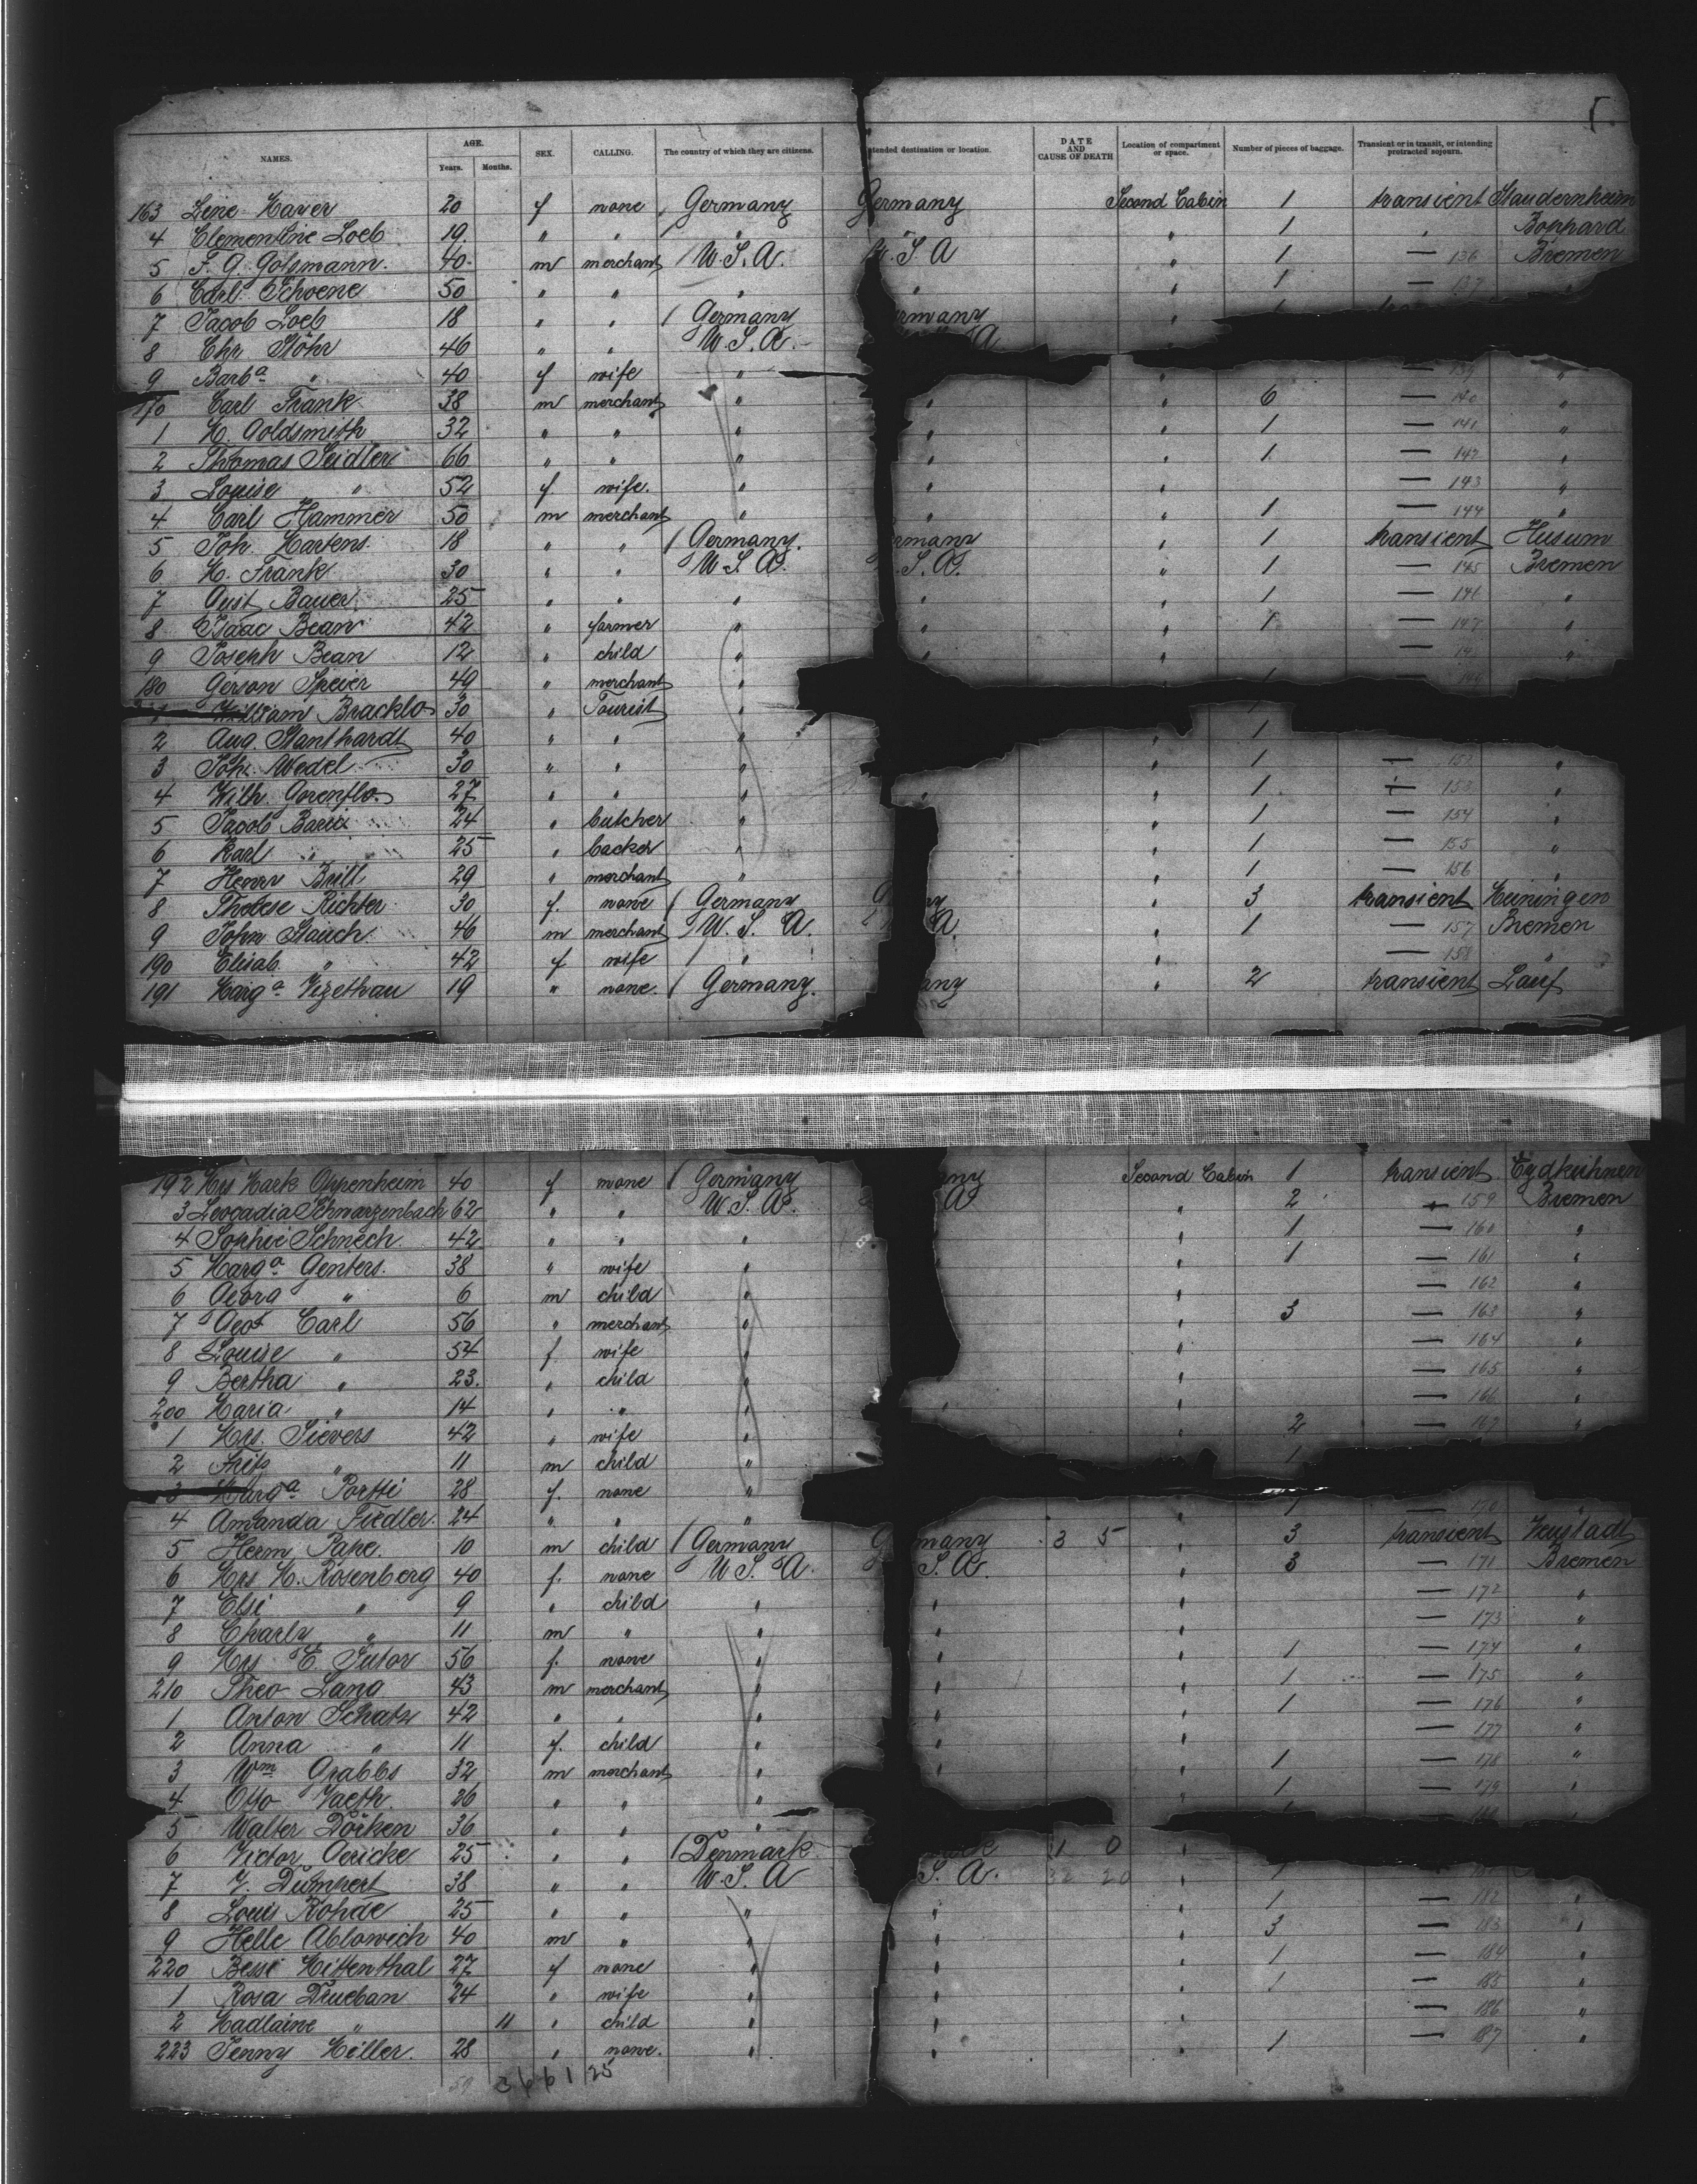 NAMES. AGE. Years. Months. SEX. CALLING. The country of which they are citizens. tended destination or location. DATE AND CAUSE OF DEATH Location of compartment or space. Number of pieces of baggage. Transient or in transit, or intending protracted sojourn.
163 Lene Mayer 20 f none Germany Germany Second Cabin 1 transient Staudernheim
4 Clementine Loeb 19 " " " " " 1 " Boppard
5 F. G. Golsmann. 40. m merchant U.S.A. U.S.A " 1 — 136 Bremen
6 Carl Schoene 50 " " " " " 1 — 137 "
7 Jacob Loeb 18 " " Germany ermany
8 Chr Stöhr 46 " " U.S.A. A
9 Barba " 40 f wife " " — 139 "
170 Carl Frank 38 m merchant " " " 6 — 140 "
1 M. Goldsmith 32 " " " " " 1 — 141 "
2 Thomas Seidler 66 " " " " " 1 — 142 "
3 Louise " 52 f. wife. " " " — 143 "
4 Carl Hammer 50 m merchant " " " 1 — 144 "
5 Joh. Martens. 18 " " Germany. ermany " 1 transient Husum
6 M. Frank 30 " " U.S.A. .S.A. " 1 — 145 Bremen
7 Aust Bauer 25 " " " " " 1 — 146 "
8 Isaac Bean 42 " farmer " " " 1 — 147 "
9 Joseph Bean 12 " child " " " — "
180 Gerson Speier 49 " merchant " 1
William Bracklo 30 " Tourist "
2 Aug. Stanthardt 40 " " " " 1
3 Joh. Wedel 30 " " " " 1 — 152 "
4 Wilh. Gorenflo 27 " " " " " 1 — 153 "
5 Jacob 24 " butcher " " 1 — 154 "
6 Karl " 25 " backer " " 1 — 155 "
7 Henry Brill 29 " merchant " " 1 — 156 "
8 Therese Richter 30 f. none Germany G ny " 3 transient Meiningen
9 John Stauch 46 m merchant U. S. A. A. " 1 — 157 Bremen
190 Elisab. " 42 f wife " " — 158 "
191 Marga Vezethau 19 " none. Germany. any " 2 transient Lauf
192 Mrs Mark Oppenheim 40 f none Germany any Second Cabin 1 transient Eydkuhnen
3 Leocadia Schwarzenbach 62 " " U.S.A. A " 2 " 159 Bremen
4 Sophie Schnech. 42 " " " " 1 — 160 "
5 Marga Genters. 38 " wife " " 1 — 161 "
6 Georg " 6 m child " " — 162 "
7 Gust Carl 56 " merchant " " 3 — 163 "
8 Louise " 54 f. wife " " — 164 "
9 Bertha " 23. " child " " — 165 "
200 Maria " 14 " " " " — 166 "
1 Mrs. Sievers 42 " wife " " 2 — 167 "
2 Fritz " 11 m child " 1
3 Marga Portti 28 f. none "
4 Amanda Fiedler. 24 " " " 1 — 170 "
5 Herm Pape. 10 m child Germany G many 3 5 " 3 transient Neustadt
6 Mrs M. Rosenberg 40 f. none U S. A. S. A. " 3 — 171 Bremen
7 Elsi " 9 " child " " " — 172 "
8 Charly " 11 m " " " " — 173 "
9 Mrs E. Sutor 56 f. none " " " 1 — 174 "
210 Theo Lang 43 m merchant " " " 1 — 175 "
1 Anton Schatz 42 " " " " " 1 — 176 "
2 Anna " 11 f. child " " " — 177 "
3 Wm Grabbs 32 m merchant " " " 1 — 178 "
4 Otto Vaeth. 26 " " " " 1 — 179 "
5 Walter Dörken 36 " " "
6 Victor Gericke 25 " " Denmark 1 0 "
7 V. Dumpert 38 " " U.S.A S. A. 32 20 "
8 Louis Rohde 25 " " " " " 1 — 182 "
9 Helle Ablowich 40 m " " " " 3 — 183 "
220 Bessi Mittenthal 27 f none " " " 1 — 184 "
1 Rosa Drueban 24 " wife " " " 1 — 185 "
2 Madlaine " 11 " child " " " — 186 "
223 Jenny Miller. 28 " none. " " " 1 — 187 "
59 3661 25